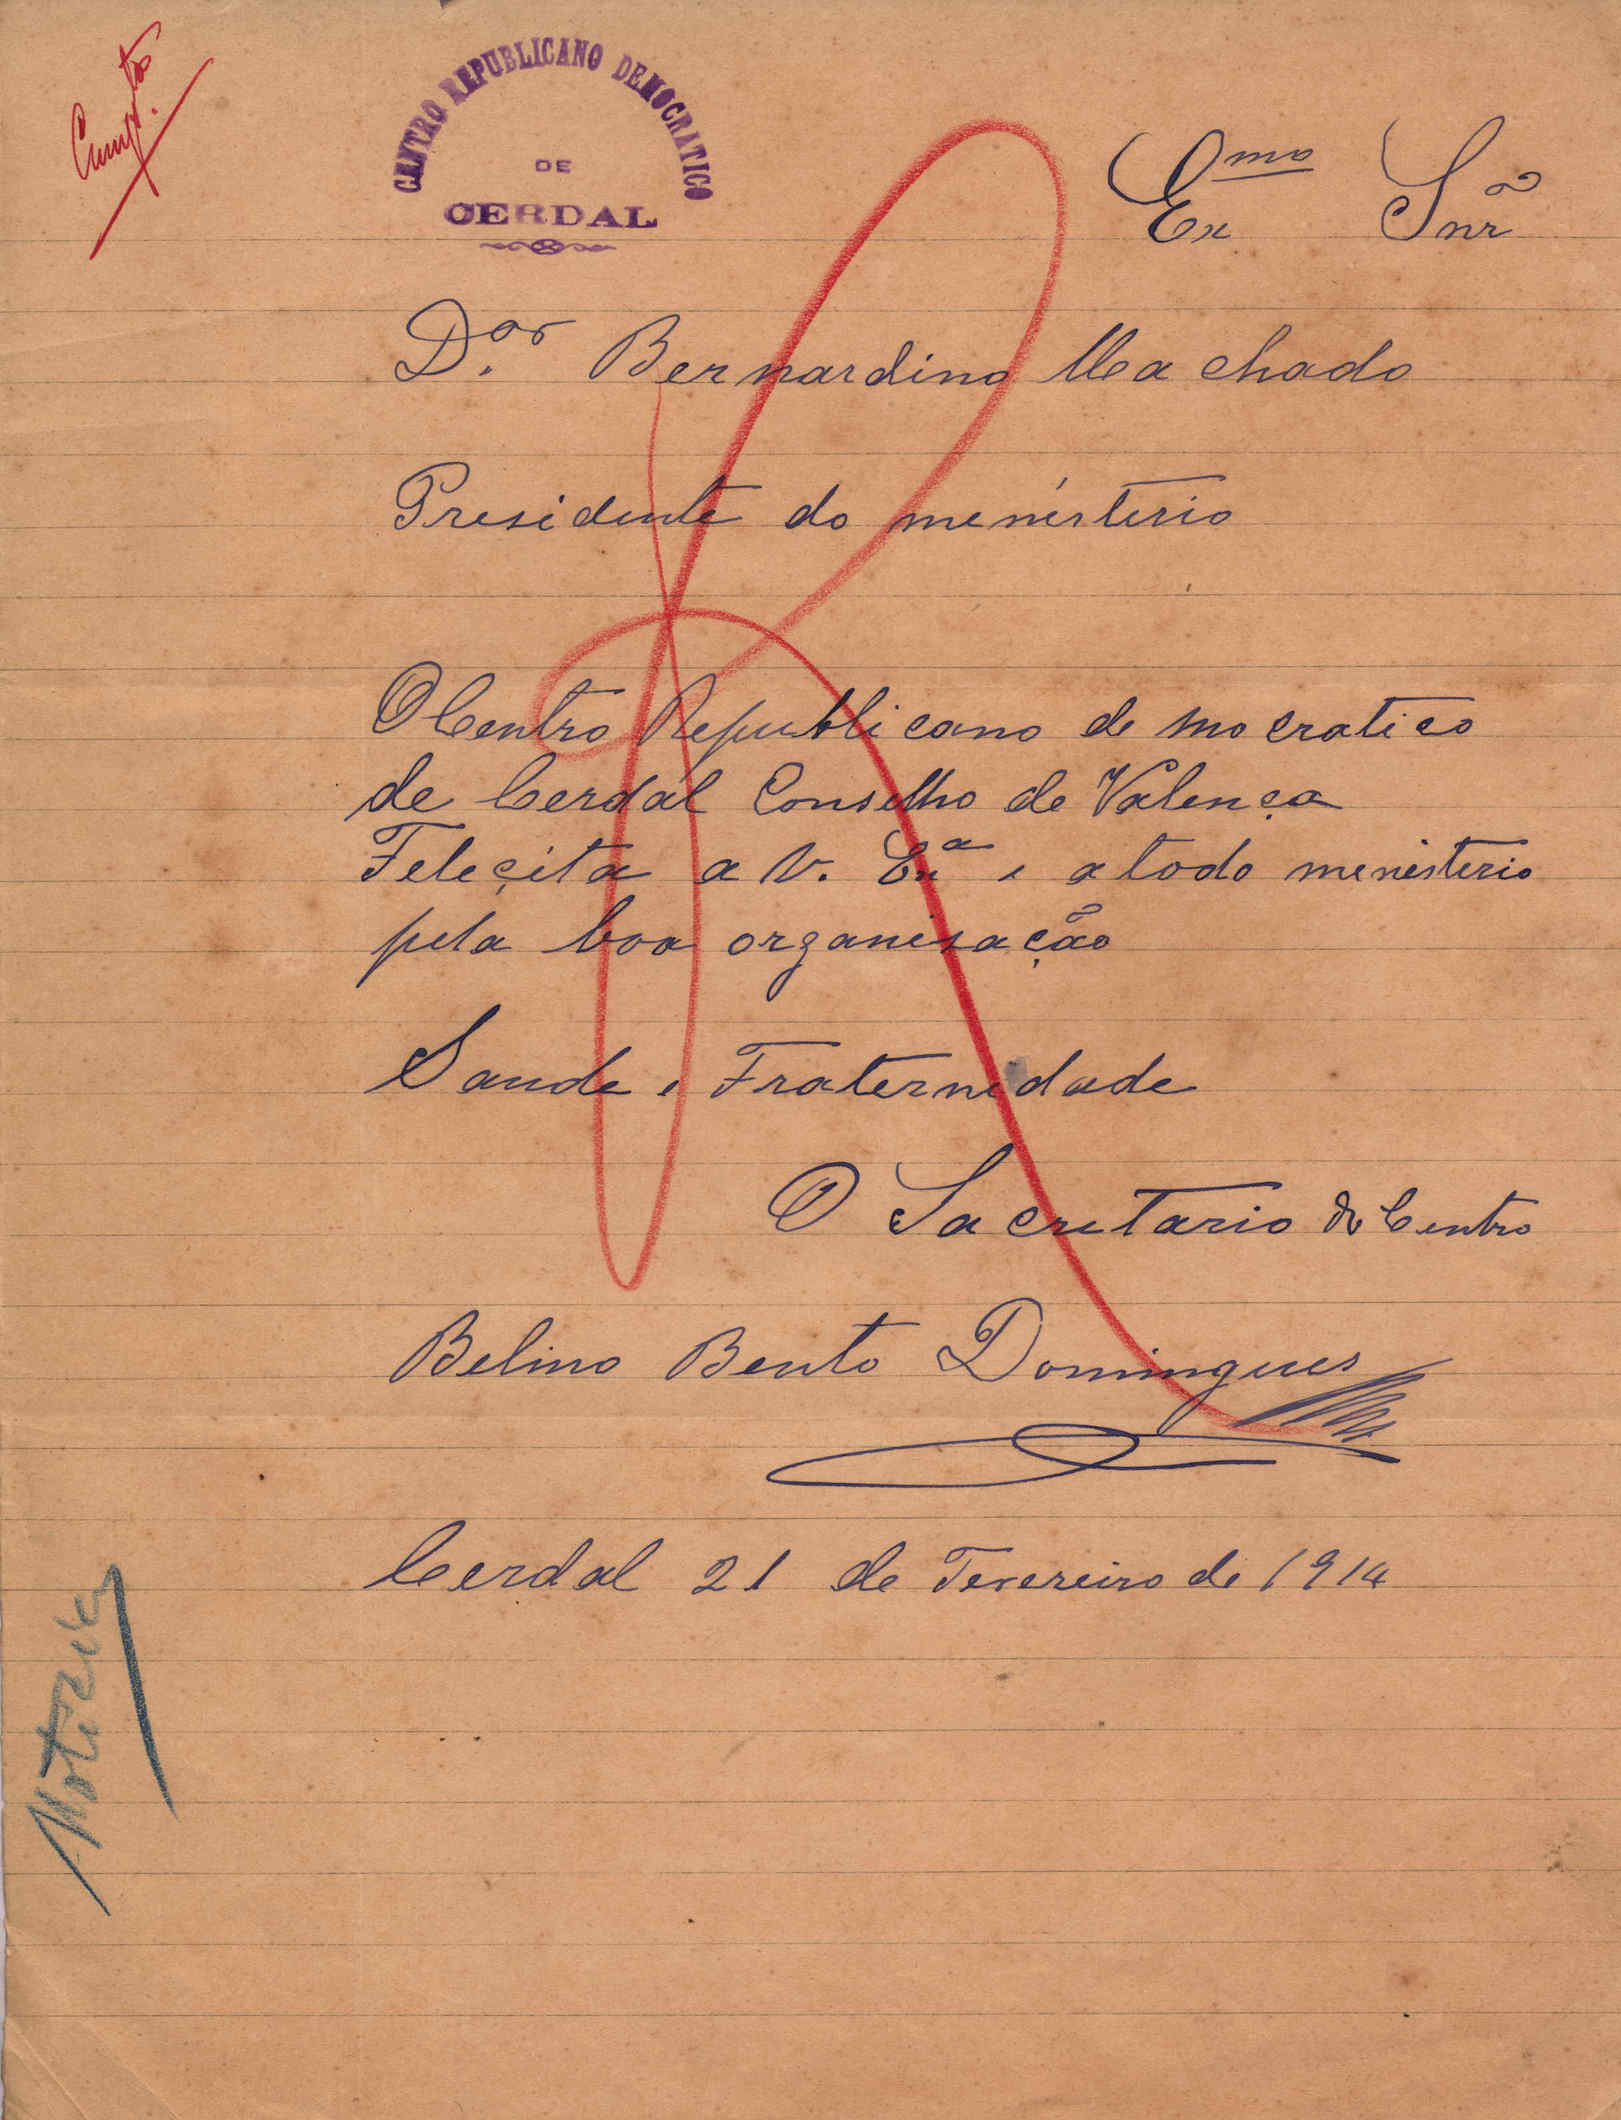 Cump.tos
CENTRO REPUBLICANO DEMOCRATICO
DE
CERDAL
Exmo Snr
D.or Bernardino Machado
Presidente do menisterio
O Centro Republicano democratico
de Cerdal Conselho de Valença
Feleçita a V. Exa e a todo menisterio
pela boa organisação
Saude e Fraternidade
O Sacretario do Centro
Belino Bento Domingues
Cerdal 21 de Fevereiro de 1914